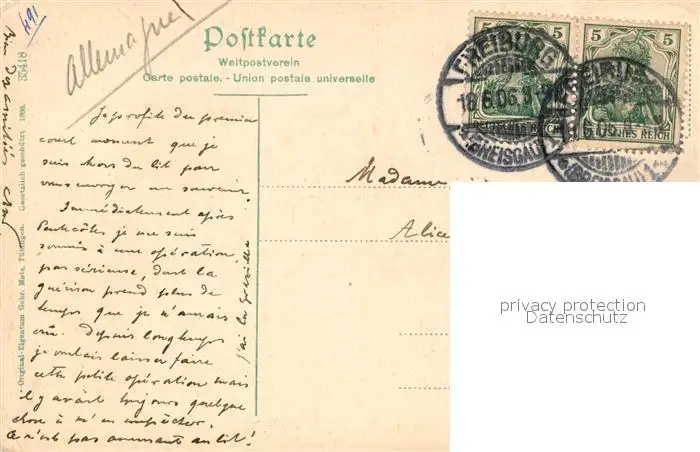 491
Allemagne
Postkarte
Weltpostverein
Carte postale. - Union postale universelle
5 5
FREIBURG
18.6.06.
(BREISGAU) 1
DEUTSCHES REICH
Je profite du premier
court moment que je
suis hors du lit pour
vous envoyer un souvenir.
Immédiatement après
Pentecôtes je me suis
soumis à une opération,
pas sérieuse, dont la
guérison prend plus de
temps que je n'aurais
cru. Depuis longtemps
je voulais laisser faire
cette petite opération mais
il y avait toujours quelque
chose à m'en empêcher.
Ce n'est pas amusant au lit!
Bien des amitiés
Madame
Alice
33418
Original-Eigentum Gebr. Metz, Tübingen. Gesetzlich geschützt 1906.
privacy protection
Datenschutz